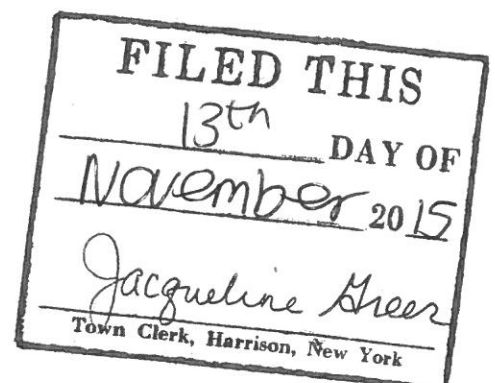 FILED THIS
13th DAY OF
November 2015
Jacqueline Greer
Town Clerk, Harrison, New York